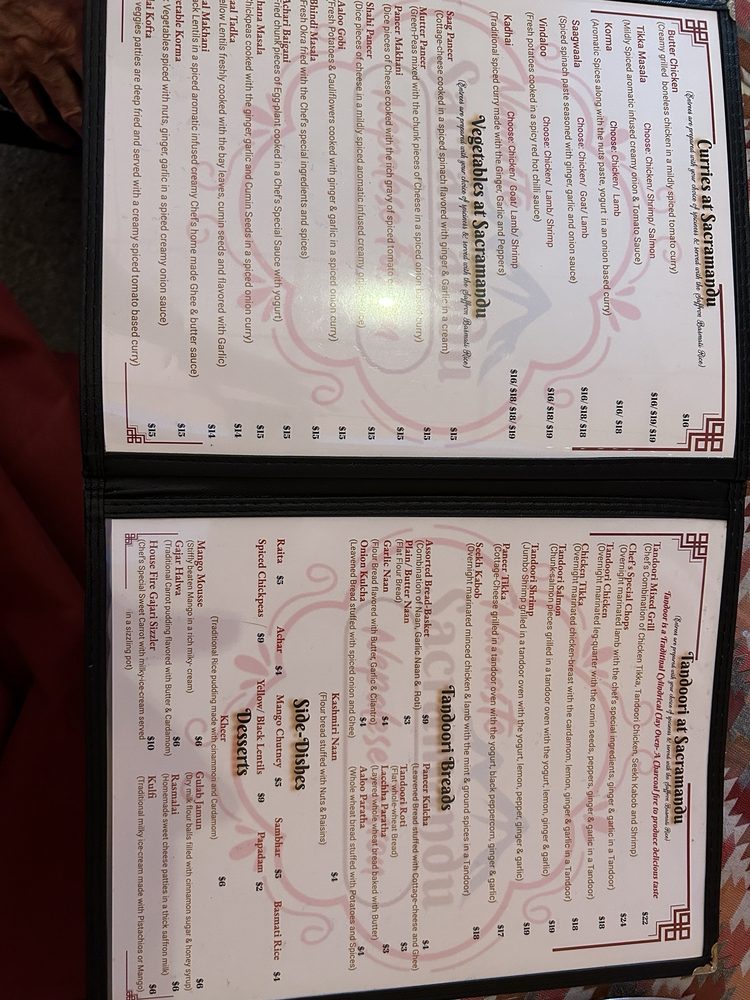 Curries at Sacramandu
(Entrees are prepared with your choice of spiciness & served with the Saffron Basmati Rice)
Butter Chicken $16
(Creamy grilled boneless chicken in a mildly spiced tomato curry)
Tikka Masala Choose: Chicken/ Shrimp/ Salmon $16/ $19/ $19
(Mildly Spiced aromatic infused creamy onion & Tomato Sauce)
Korma Choose: Chicken/ Lamb $16/ $18
(Aromatic Spices along with the nuts paste, yogurt in an onion based curry)
Saagwaala Choose: Chicken/ Goat/ Lamb $16/ $18/ $18
(Spiced spinach paste seasoned with ginger, garlic, and onion sauce)
Vindaloo Choose: Chicken/ Lamb/ Shrimp $16/ $18/ $19
(Fresh potatoes cooked in a spicy red hot chilli sauce)
Kadhai Choose: Chicken/ Goat/ Lamb/ Shrimp $16/ $18/ $18/ $19
(Traditional spiced curry made with the Ginger, Garlic and Peppers)
Vegetables at Sacramandu
(Entrees are prepared with your choice of spiciness & served with the Saffron Basmati Rice)
Saag Paneer $15
(Cottage-cheese cooked in a spiced spinach flavored with ginger & Garlic in a cream)
Mutter Paneer $15
(Green-Peas mixed with the chunk pieces of Cheese in a spiced onion curry)
Paneer Makhani $15
(Dice pieces of Cheese cooked with the rich gravy of spiced tomato
Shahi Paneer $15
(Dice pieces of cheese in a mildly spiced aromatic infused creamy
Aaloo Gobi $15
(Fresh Potatoes & Cauliflowers cooked with ginger & garlic in a spiced onion curry)
Bhindi Masala $15
Fresh Okra fried with the Chef's special ingredients and spices)
Achari Baigani $15
Fried chunk pieces of Egg-plant cooked in a Chef's Special Sauce with yogurt)
hana Masala $15
hickpeas cooked with the ginger, garlic and Cumin Seeds in a spiced onion curry)
aal Tadka $14
ellow Lentils freshly cooked with the bay leaves, cumin seeds and flavored with Garlic)
al Makhani $14
ack Lentils in a spiced aromatic infused creamy Chef's home made Ghee & butter sauce)
etable Korma $15
Vegetables spiced with nuts, ginger, garlic in a spiced creamy onion sauce)
lai Kofta $15
veggies patties are deep fried and served with a creamy spiced tomato based curry)
Tandoori at Sacramandu
(Entrees are prepared with your choice of spiciness & served with the Saffron Basmati Rice)
Tandoor is a Traditional Cylindrical Clay Oven- A Charcoal fire to produce delicious taste
Tandoori Mixed Grill $22
(Chef's Combination of Chicken Tikka, Tandoori Chicken, Seekh Kabob and Shrimp)
Chef's Special Chops $24
(Overnight marinated lamb with the chef's special ingredients, ginger & garlic in a Tandoor)
Tandoori Chicken $18
(Overnight marinated leg-quarter with the cumin seeds, peppers, ginger & garlic in a Tandoor)
Chicken Tikka $18
(Overnight marinated chicken-breast with the cardamom, lemon, ginger & garlic in a Tandoor)
Tandoori Salmon $19
(Chunk-salmon pieces grilled in a tandoor oven with the yogurt, lemon, ginger & garlic)
Tandoori Shrimp $19
(Jumbo Shrimp grilled in a tandoor oven with the yogurt, lemon, pepper, ginger & garlic)
Paneer Tikka $17
(Cottage-Cheese grilled in a tandoor oven with the yogurt, black peppercorn, ginger & garlic)
Seekh Kabob $18
(Overnight marinated minced chicken & lamb with the mint & ground spices in a Tandoor)
Tandoori Breads
Assorted Bread-Basket $9 Paneer Kulcha $4
(Combination of Naan, Garlic Naan & Roti) (Leavened Bread stuffed with Cottage-cheese and Ghee)
Plain/ Butter Naan $3 Tandoori Roti $3
(Flat Flour Bread) (Flat whole-wheat Bread)
Garlic Naan $4 Lacchha Paratha $3
(Flour Bread flavored with Butter, Garlic & Cilantro) (Layered whole wheat bread baked with Butter)
Onion Kulcha $4 Aaloo Paratha $4
(Leavened Bread stuffed with spiced onion and Ghee) (Whole wheat bread stuffed with Potatoes and Spices)
Kashmiri Naan $4
(Flour bread stuffed with Nuts & Raisins)
Side-Dishes
Raita $3 Achar $4 Mango Chutney $3 Sambhar $3 Basmati Rice $4
Spiced Chickpeas $9 Yellow/ Black Lentils $9 Papadam $2
Desserts
Kheer $6
(Traditional Rice pudding made with cinnamon and Cardamom)
Mango Mousse $6 Gulab Jamun $6
(Stiffly beaten Mango in a rich milky- cream) (Dry milk flour balls filled with cinnamon sugar & honey syrup)
Gajar Halwa $6 Rasmalai $6
(Traditional Carrot pudding flavored with Butter & Cardamom) (Homemade sweet cheese patties in a thick saffron milk)
House Fire Gajari Sizzler $10 Kulfi $6
(Chef's Special Sweet Carrot with milky-ice-cream served (Traditional milky ice-cream made with Pistachios or Mango)
in a sizzling pot)